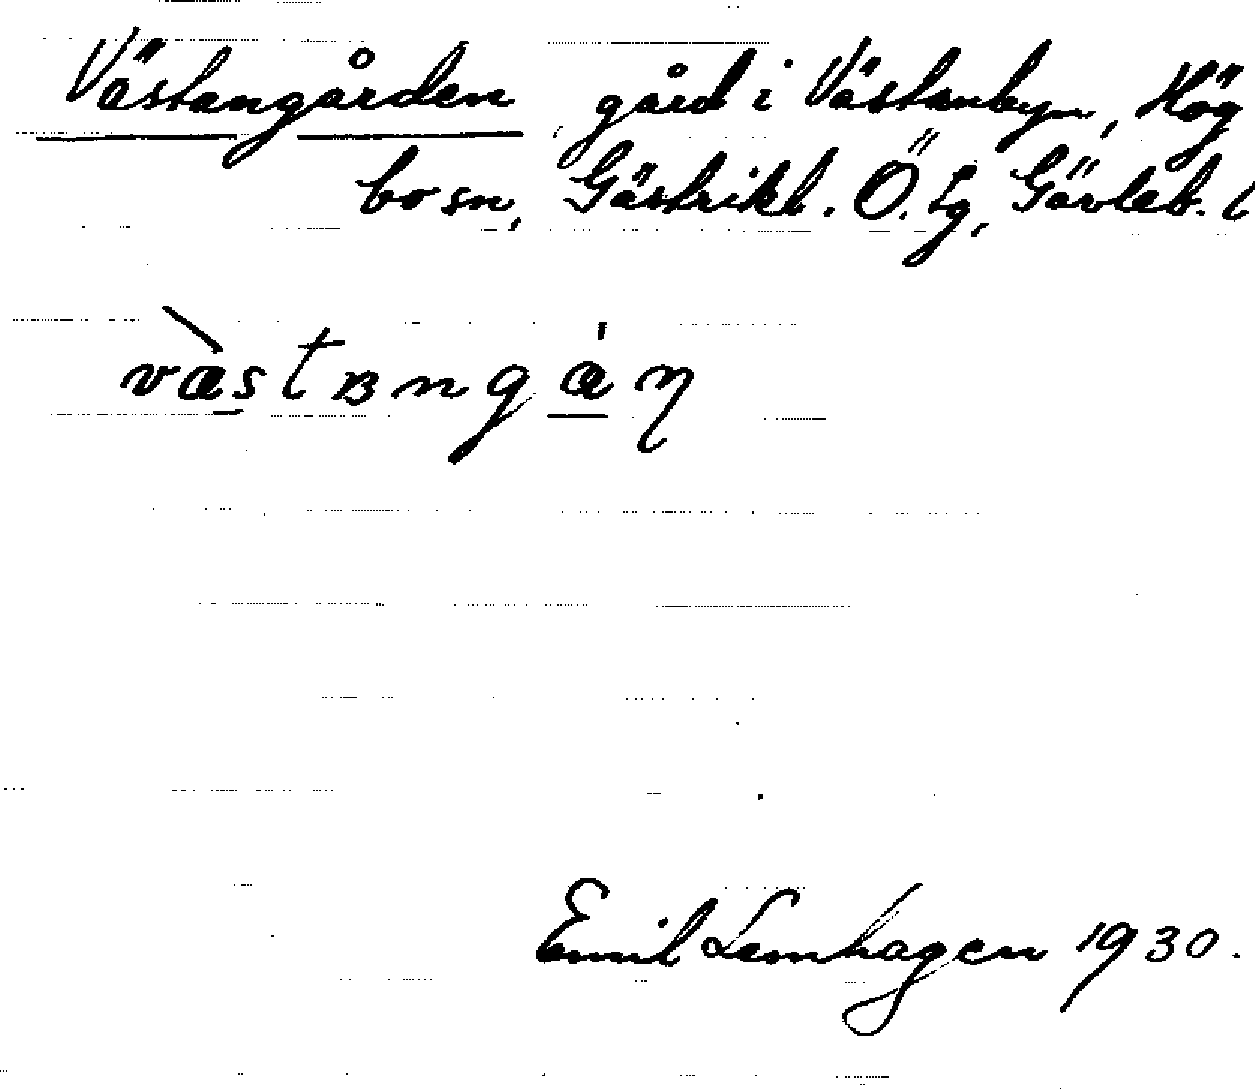 Västangården gård i Västanbyn, Hög
bo sn, Gästrikl. Ö. tg, Gävleb. l
Emil Lemhagen 1930.